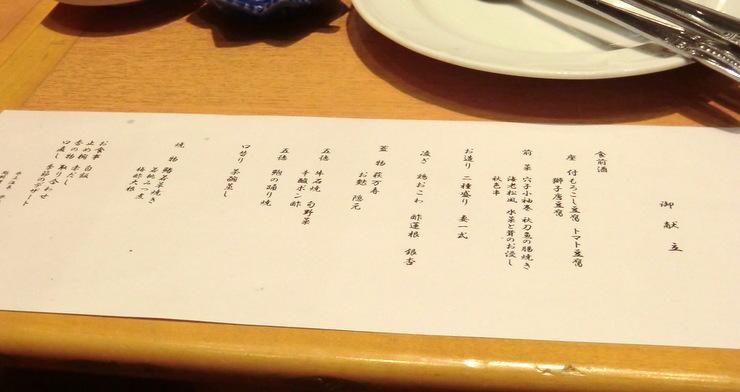 御献立
食前酒
座 付 もろこし豆腐 トマト豆腐
獅子唐豆腐
前 菜 穴子小袖巻 秋刀魚の腸焼き
海老松風 水菜と茸のお浸し
秋色串
お造り 二種盛り 妻一式
凌ぎ 鶏おこわ 酢蓮根 銀杏
蓋 物 萩万寿
お麩 隠元
五徳 牛石焼 旬野菜
手酸ポン酢
五徳 鮑の踊り焼
口替り 茶碗蒸し
焼 物 鰆若菜焼き
若桃みつ煮
梅酢大根
お食事 白飯
止め椀 赤だし
香の物 取り合わせ
口直し 季節のデザート